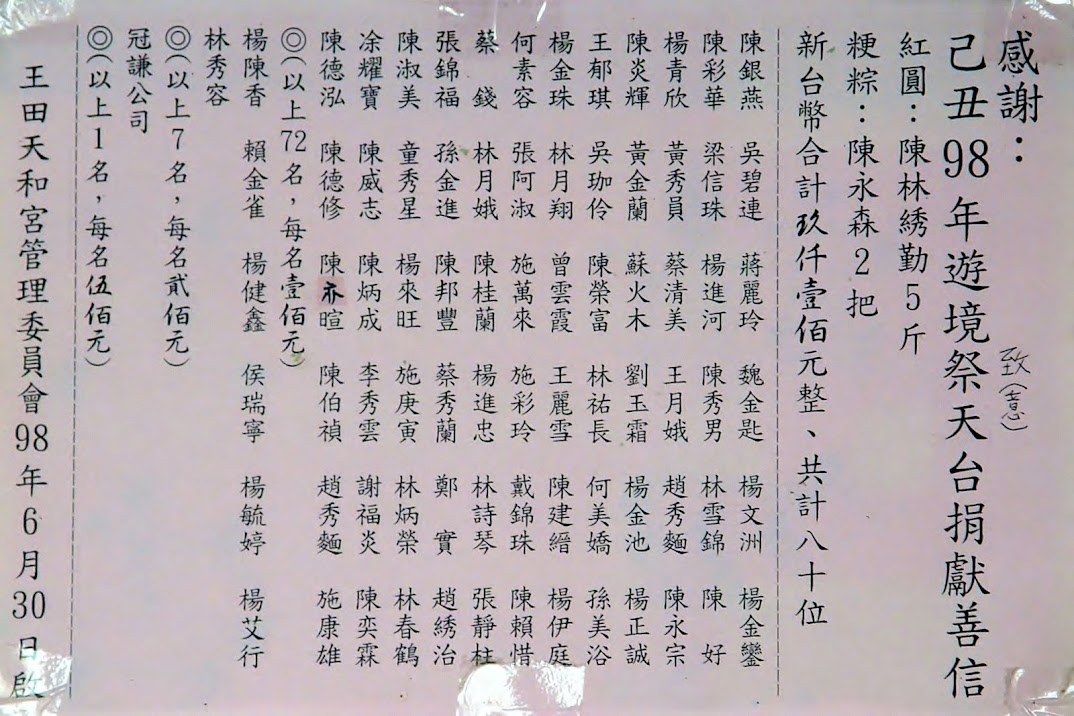 感謝：
致(意)
己丑98年遊境祭天台捐獻善信
紅圓：陳林綉勤5斤
粳粽：陳永森2把
新台幣合計玖仟壹佰元整、共計八十位
陳銀燕 吳碧連 蔣麗玲 魏金匙 楊文洲 楊金鑾
陳彩華 梁信珠 楊進河 陳秀男 林雪錦 陳 好
楊青欣 黃秀員 蔡清美 王月娥 趙秀麵 陳永宗
陳炎輝 黃金蘭 蘇火木 劉玉霜 楊金池 楊正誠
王郁琪 吳珈伶 陳榮富 林祐長 何美嬌 孫美浴
楊金珠 林月翔 曾雲霞 王麗雪 陳建縉 楊伊庭
何素容 張阿淑 施萬來 施彩玲 戴錦珠 陳賴惜
蔡 錢 林月娥 陳桂蘭 楊進忠 林詩琴 張靜柱
張錦福 孫金進 陳邦豐 蔡秀蘭 鄭 實 趙綉治
陳淑美 童秀星 楊來旺 施庚寅 林炳榮 林春鶴
凃耀寶 陳威志 陳炳成 李秀雲 謝福炎 陳奕霖
陳德泓 陳德修 陳亦暄 陳伯禎 趙秀麵 施康雄
◎(以上72名，每名壹佰元)
楊陳香 賴金雀 楊健鑫 侯瑞寧 楊毓婷 楊艾行
林秀容
◎(以上7名，每名貳佰元)
冠謙公司
◎(以上1名，每名伍佰元)
王田天和宮管理委員會98年6月30日啟